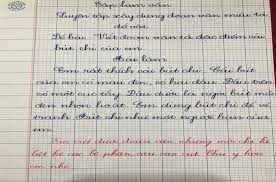 Tập làm văn
Luyện tập xây dựng đoạn văn miêu tả
đồ vật
Đề bài: Viết đoạn văn tả đặc điểm cái
bút chì của em.
Bài làm
Em rất thích cái bút chì. Cái bút
của em có màu đen, có hai đầu. Đầu trên
có một cục tẩy. Đầu dưới là ngòi bút màu
đen nhọn hoắt. Em dùng bút chì để vẽ
tranh. Bút chì như một người bạn của
em.
Em viết được đoạn văn nhưng mới chỉ là
liệt kê các bộ phận, câu văn cụt. Chú ý hơn
em nhé.